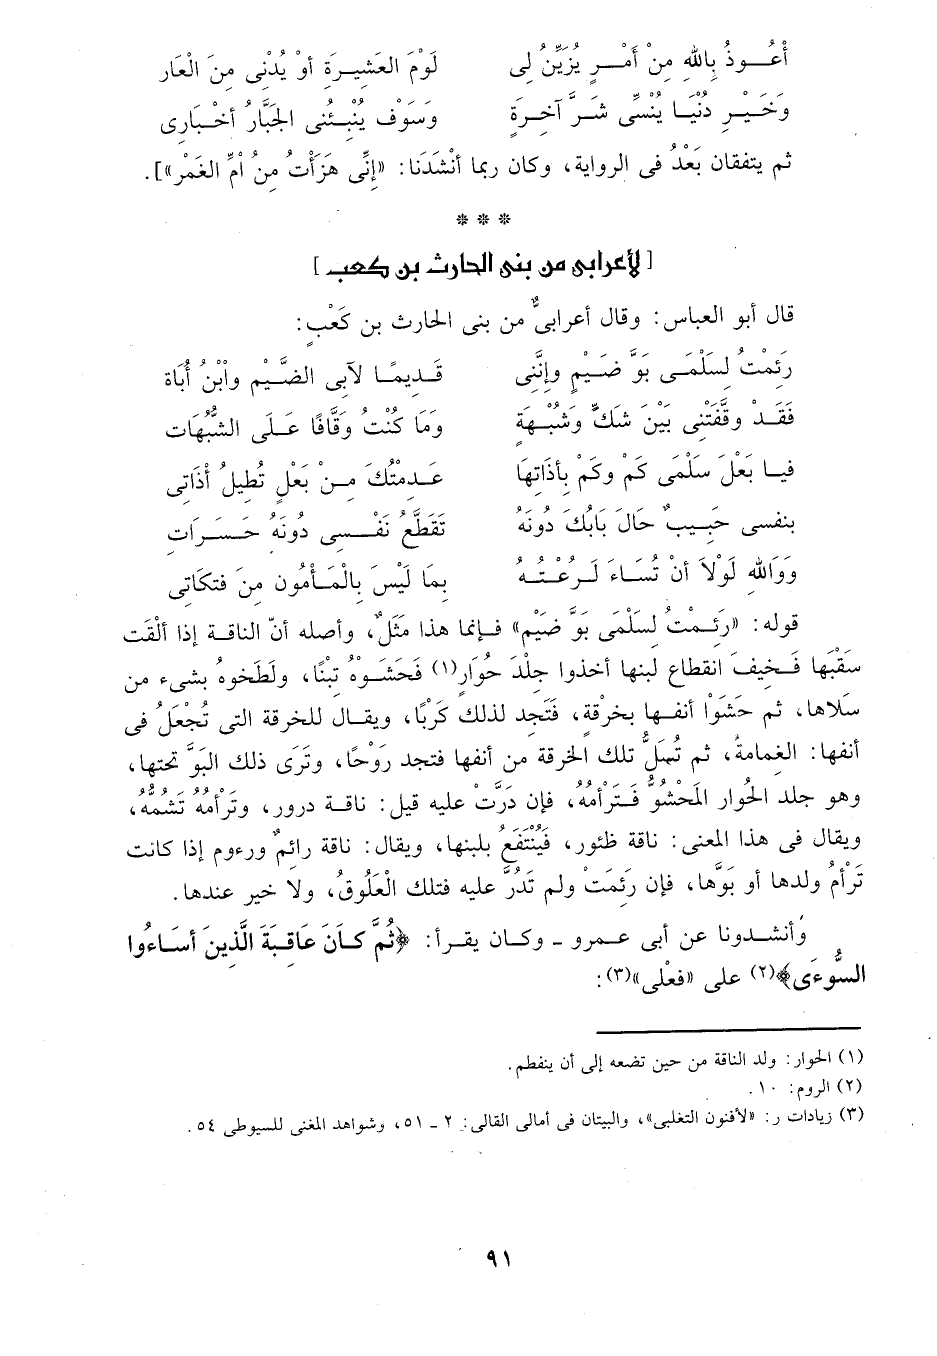 أَعُـــوذُ بِاللهِ مِنْ أَمْـــرٍ يُزَيِّنُ لِى لَوْمَ العَشِيــرَةِ أوْ يُدْنِى مِنَ الْعَار
وَخَـــيْـــرِ دنْيَـــا يُنْسِّى شَــرَّ آخِـــرَةٍ وَسَوْف يُنْبِـئُنِى الجَبَّارُ أخْـبَارِى
ثم يتفقان بَعْدُ فى الرواية، وكان ربما أنْشَدَنا: «إنِّى هَزَأَتْ مِنُ أمِّ الغَمْر»].
* * *
[ لأعرابى من بنى الحارث بن كعب ]
قال أبو العباس: وقال أعرابىٌّ من بنى الحارث بن كَعْب:
رَئِمْتُ لِسَلْمَـى بَوَّ ضَيْمٍ وإنَّنِى قَـديمًــا لآبِى الضَّيْم وأبْنُ أُبَاة
فَقَـدْ وقَّفَتْنِى بَيْنَ شَكٍّ وَشُبْـهَةٍ وَمَا كُنْتُ وَقَّافًا عَـلَى الشُّبُهَات
فيـا بَعْلَ سَلْمَى كَمْ وكَم بأذَاتِهَا عَـدِمْتُكَ مِـنْ بَعْلٍ تُطِيلُ أذَاتِى
بنفسى حَبيـبٌ حَالَ بَابُكَ دُونَهُ تَقَطَّعُ نَفْـــسِى دُونَهُ حَــسَــرَاتِ
وَوَالله لَوْلاَ أن تُسَـاءَ لَـرُعْـتُـهُ بِمَا لَيْسَ بِالْمَـأمُون مِنَ فتكَاتِى
قوله: «رَئِـمْتُ لسَلْمَى بَوَّ ضَيْمٍ» فـإنما هذا مَثَلٌ، وأصله أنّ الناقـة إذا ألْقَت
سَقْبَها فَـخيفَ انقطاع لبنها أخذوا جِلْدَ حُوَار(١) فَحَشَـوْهُ تِبْنًا، ولَطَخوهُ بشىء من
سَلاها، ثم حَشَوْا أنفـها بخرقة، فَتَجد لذلك كَرْبًا، ويقـال للخرقة التى تُجْعَلُ فى
أنفها: الغِمامةُ، ثم تُسَلُّ تلك الخرقة من أنفها فتجد رَوْحًا، وتَرَى ذلك البَوَّ تحتها،
وهو جلد الحُوار المَحْشُوُّ فَـتَرأمُهُ، فإن دَرَّتْ عليه قيل: ناقـة درور، وتَرأمُهُ تَشُمُّهُ،
ويقال فى هذا المعنى: ناقة ظئور، فَيُنْتَفَعُ بلبنها، ويقال: ناقة رائمٌ ورءوم إذا كانت
تَرْأمُ ولدها أو بَوَّها، فإن رَئِمَتْ ولم تَدُرَّ عليه فتلك الْعَلُوقُ، ولا خير عندها.
وأنشـدونا عن أبى عـمرو ـ وكـان يقـرأ: ﴿ثُمَّ كَـانَ عَاقِبَةَ الَّذِينَ أسَـاءُوا
السُّوءَى﴾(٢) على «فعْلى»(٣):
(١) الحوار: ولد الناقة من حين تضعه إلى أن ينفطم.
(٢) الروم: ١٠.
(٣) زيادات ر: «لأفنون التغلبى»، والبيتان فى أمالى القالى: ٢ ـ ٥١، وشواهد المغنى للسيوطى ٥٤.
٩١